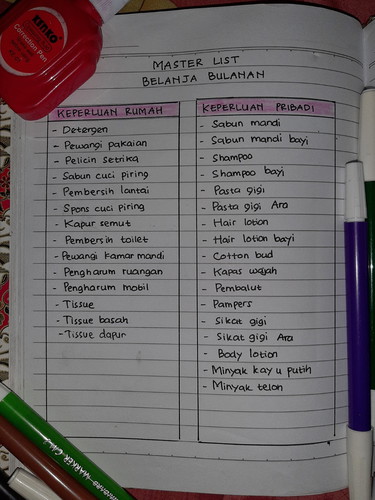 KENKO
Correction Pen
MASTER LIST
BELANJA BULANAN
KEPERLUAN RUMAH
- Detergen
- Pewangi pakaian
- Pelicin setrika
- Sabun cuci piring
- Pembersih lantai
- Spons cuci piring
- Kapur semut
- Pembersih toilet
- Pewangi kamar mandi
- Pengharum ruangan
- Pengharum mobil
- Tissue
- Tissue basah
- Tissue dapur
KEPERLUAN PRIBADI
- Sabun mandi
- Sabun mandi bayi
- Shampoo
- Shampoo bayi
- Pasta gigi
- Pasta gigi Ara
- Hair lotion
- Hair lotion bayi
- Cotton bud
- Kapas wajah
- Pembalut
- Pampers
- Sikat gigi
- Sikat gigi Ara
- Body lotion
- Minyak kayu putih
- Minyak telon